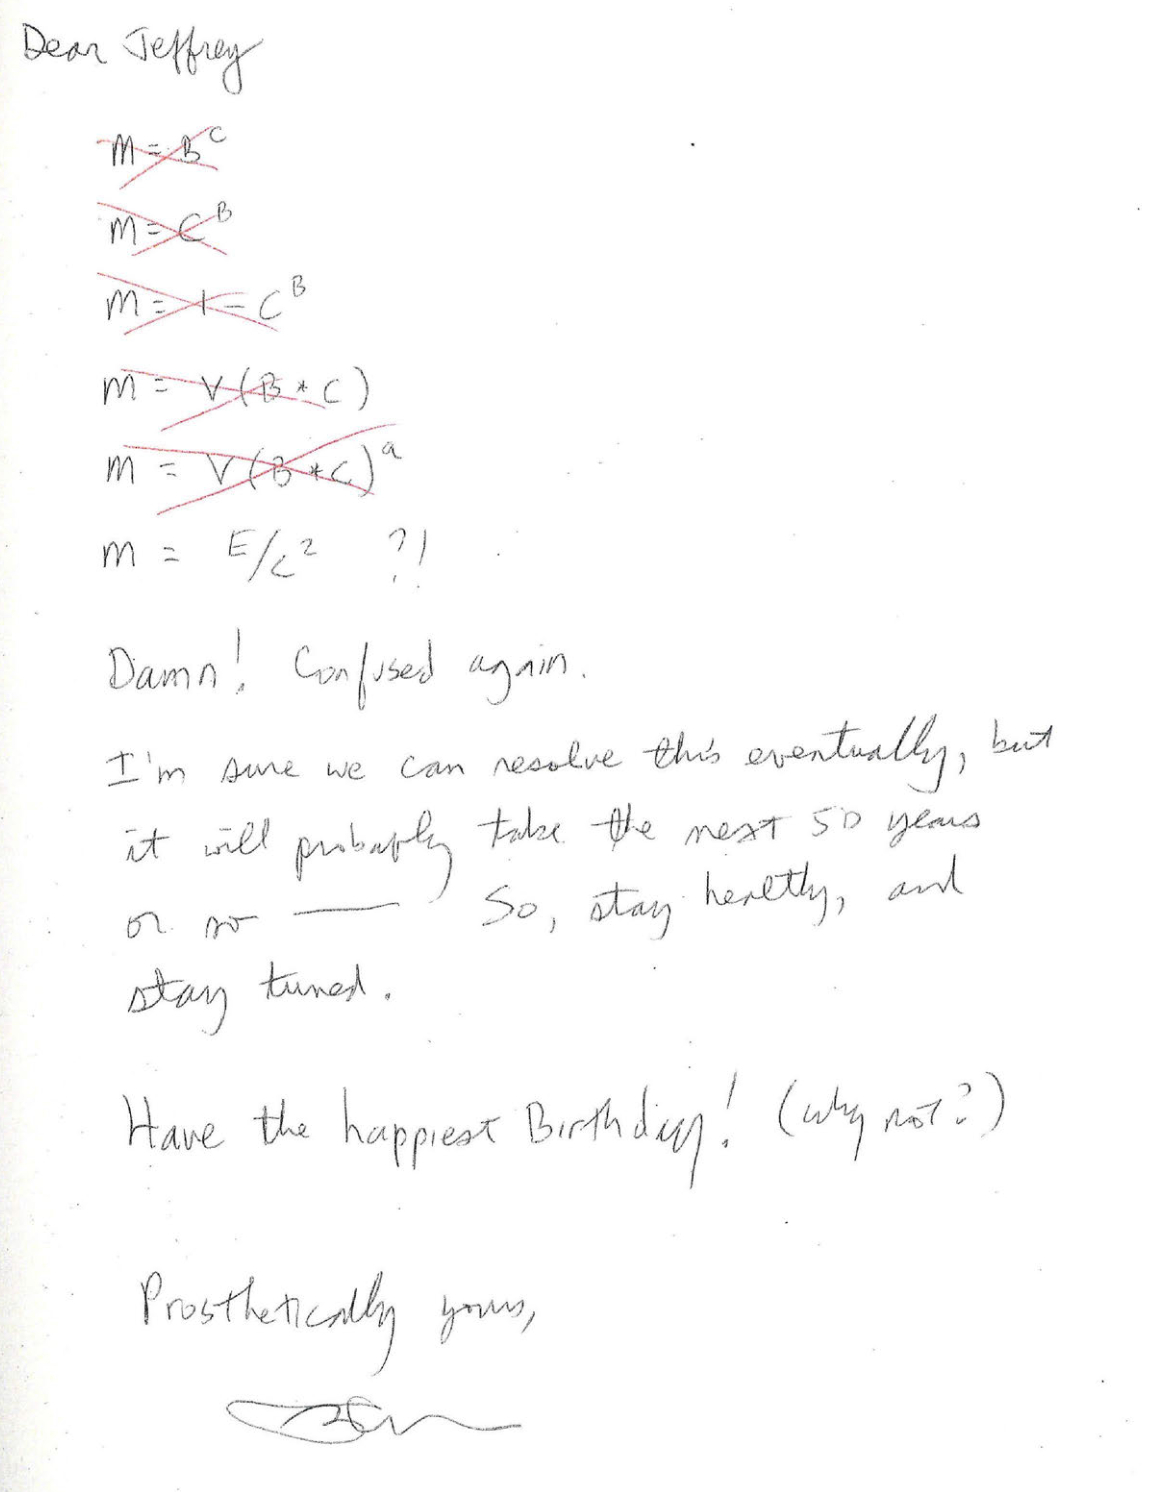 Dear Jeffrey
M = B^C
M = C^B
M = 1 - C^B
M = V(B * C)
M = V(B * C)^a
M = E/c^2 ?!
Damn! Confused again.
I'm sure we can resolve this eventually, but
it will probably take the next 50 years
or so — So, stay healthy, and
stay tuned.
Have the happiest Birthday! (why not?)
Prosthetically yours,